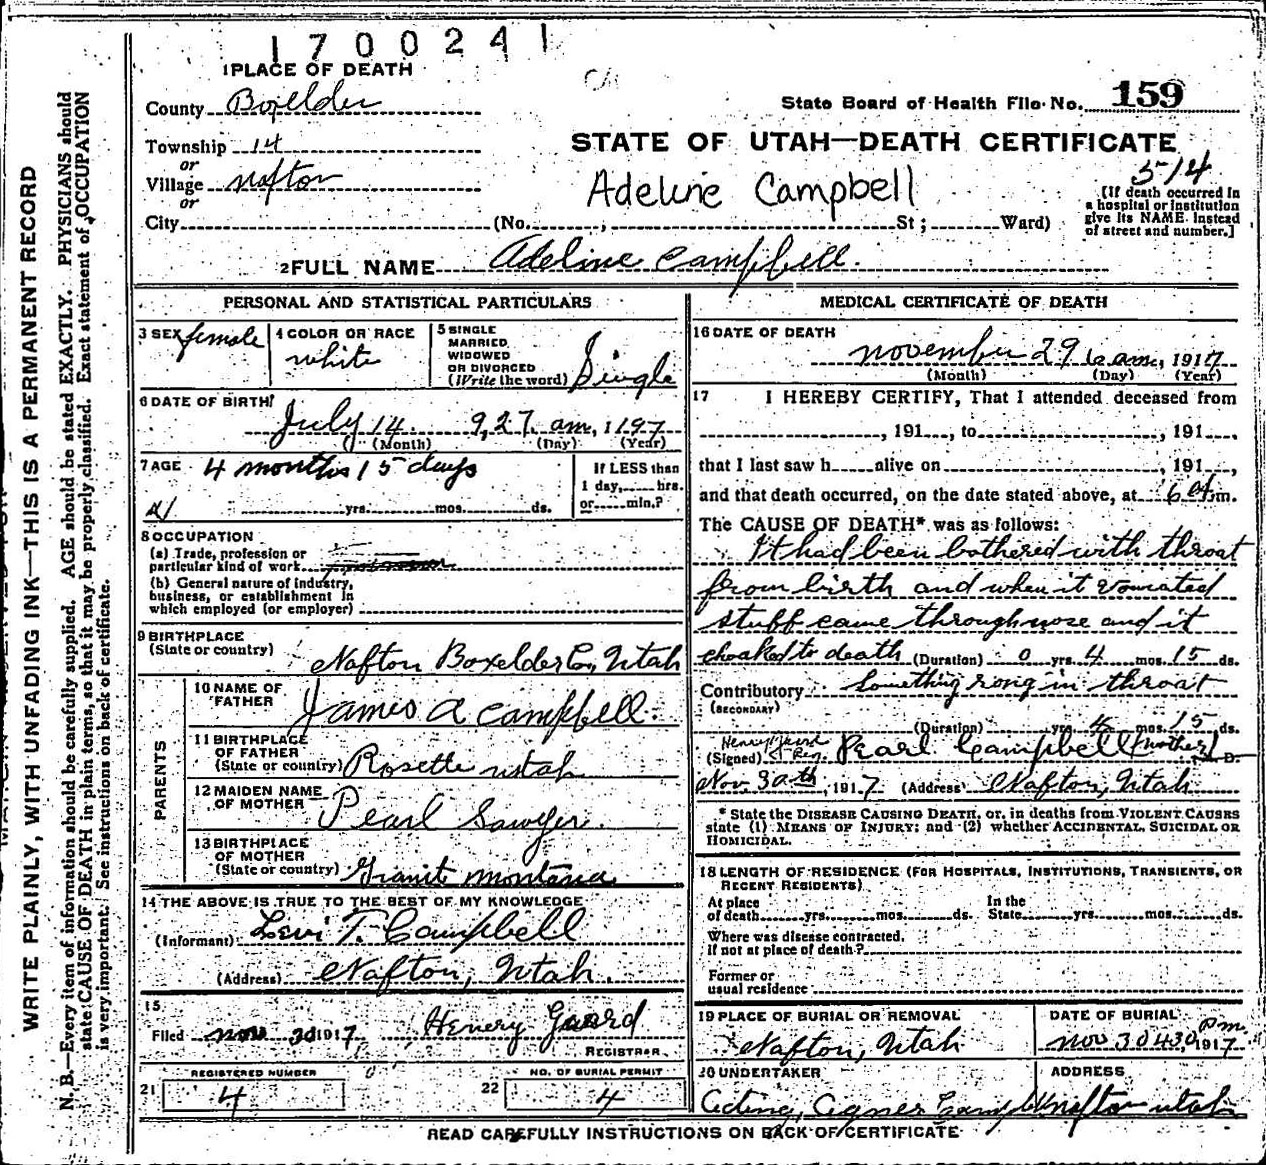 1700241
1 PLACE OF DEATH
County Boxelder
State Board of Health File No. 159
Township 14
STATE OF UTAH—DEATH CERTIFICATE
or
Village Nafton
or
Adeline Campbell
514
[If death occurred in a hospital or institution give its NAME instead of street and number.]
City (No. ; St ; Ward)
2 FULL NAME Adeline Campbell.
PERSONAL AND STATISTICAL PARTICULARS
3 SEX female
4 COLOR OR RACE white
5 SINGLE MARRIED, WIDOWED OR DIVORCED (Write the word) Single
6 DATE OF BIRTH
July 14 9,27 am, 1197
(Month) (Day) (Year)
7 AGE 4 months 15 days
yrs. mos. ds.
If LESS than 1 day, hrs. or min.?
8 OCCUPATION
(a) Trade, profession or particular kind of work
(b) General nature of industry, business, or establishment in which employed (or employer)
9 BIRTHPLACE
(State or country) Nafton Boxelder Co, Utah
PARENTS
10 NAME OF FATHER James A Campbell.
11 BIRTHPLACE OF FATHER (State or country) Rosette utah
12 MAIDEN NAME OF MOTHER Pearl Sawyer.
13 BIRTHPLACE OF MOTHER (State or country) Granit montana
14 THE ABOVE IS TRUE TO THE BEST OF MY KNOWLEDGE
(Informant) Levi T. Campbell
(Address) Nafton, Utah.
15
Filed nov 30 1917, Henery
REGISTRAR
REGISTERED NUMBER
21 4
NO. OF BURIAL PERMIT
22 4
MEDICAL CERTIFICATE OF DEATH
16 DATE OF DEATH
november 29 6 am, 1917
(Month) (Day) (Year)
17 I HEREBY CERTIFY, That I attended deceased from
, 191 , to , 191 ,
that I last saw h alive on , 191 ,
and that death occurred, on the date stated above, at 6 a.m.
The CAUSE OF DEATH* was as follows:
It had been bothered with throat
from birth and when it vomated
stuff came through nose and it
choaked to death (Duration) 0 yrs. 4 mos. 15 ds.
Contributory something rong in throat
(SECONDARY)
(Duration) yrs. 4 mos. 15 ds.
(Signed) Pearl Campbell (mother) D.
Nov. 30th, 1917. (Address) Nafton, Utah.
* State the DISEASE CAUSING DEATH, or, in deaths from VIOLENT CAUSES state (1) MEANS OF INJURY; and (2) whether ACCIDENTAL, SUICIDAL OR HOMICIDAL.
18 LENGTH OF RESIDENCE (FOR HOSPITALS, INSTITUTIONS, TRANSIENTS, OR RECENT RESIDENTS)
At place of death yrs. mos. ds. In the State yrs. mos. ds.
Where was disease contracted, if not at place of death?
Former or usual residence
19 PLACE OF BURIAL OR REMOVAL
Nafton, Utah
DATE OF BURIAL
nov 30 430 pm. 1917
20 UNDERTAKER
Acting, Agnes Campbell
ADDRESS
nafton utah
READ CAREFULLY INSTRUCTIONS ON BACK OF CERTIFICATE
WRITE PLAINLY, WITH UNFADING INK—THIS IS A PERMANENT RECORD
N. B.—Every item of information should be carefully supplied. AGE should be stated EXACTLY. PHYSICIANS should
state CAUSE OF DEATH in plain terms, so that it may be properly classified. Exact statement of OCCUPATION
is very important. See instructions on back of certificate.